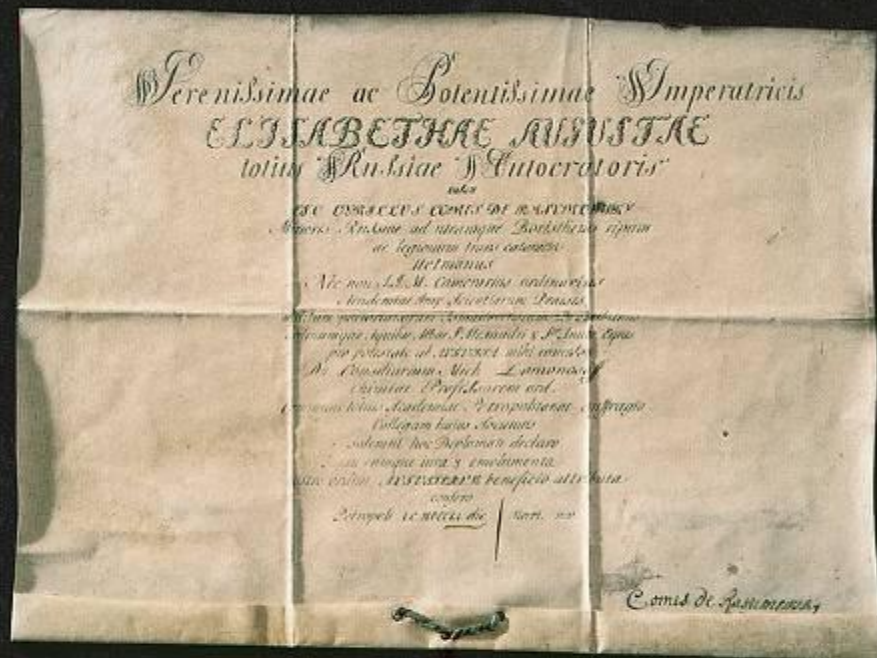 Serenissimae ac Potentissimae Imperatricis
ELISABETHAE AUGUSTAE
totius Russiae Autocratoris
EGO CYRILLUS COMES DE RASUMOWSKY
Minoris Russiae ad utramque Boristhenis ripam
ac legionum trans
Hetmanus
Nec non S. I. M. Camerarius ordinarius
Academiae Scientiarum Praeses
Aquilae Albae S. Alexandri & S. Annae Eques
pro potestate ab AUGUSTA mihi concessa
Consiliarium Mich Lomonosoff
Chimiae Professorem ord.
totius Academiae Petropolitanae suffragio
Collegam huius Societatis
solemni hoc Diplomate declaro
iura & emolumenta
ordini AUGUSTAE beneficio attributa
confero
Petropoli die
Comes de Rasumowsky